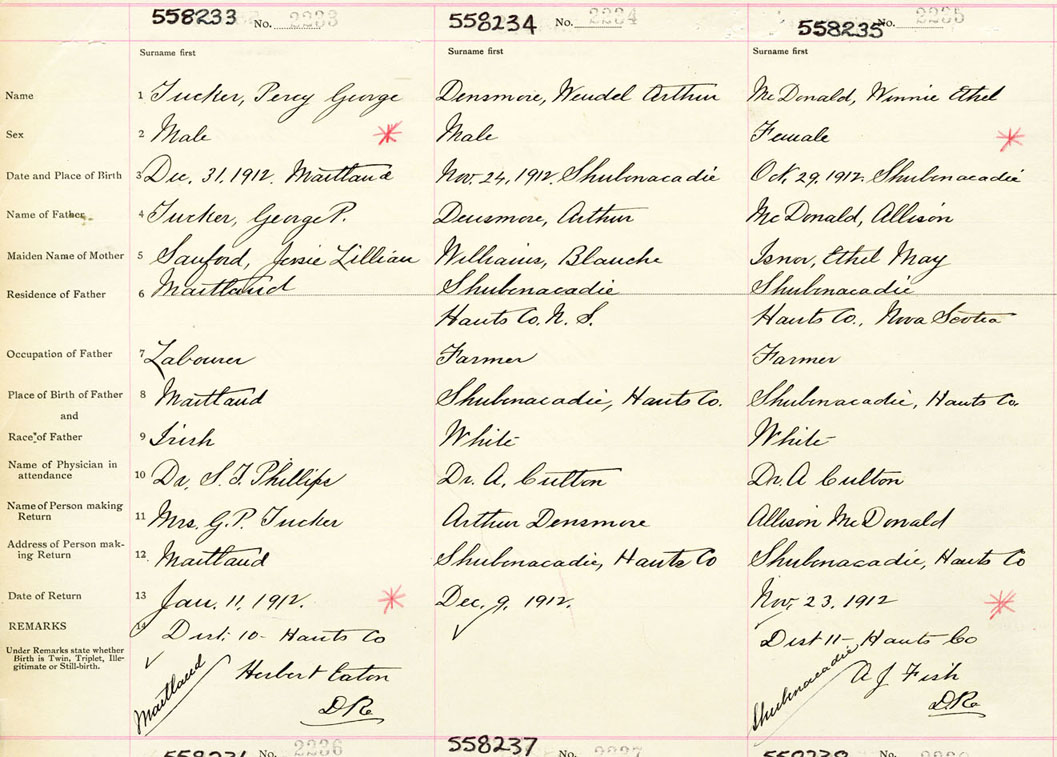 558233 No. 2233 558234 No. 2234 558235 No. 2235
Surname first Surname first Surname first
Name 1 Tucker, Percy George Densmore, Wendel Arthur McDonald, Winnie Ethel
Sex 2 Male Male Female
Date and Place of Birth 3 Dec. 31, 1912. Maitland Nov. 24, 1912. Shubenacadie Oct. 29, 1912. Shubenacadie
Name of Father 4 Tucker, George P. Densmore, Arthur McDonald, Allison
Maiden Name of Mother 5 Sanford, Jessie Lillian Williams, Blanche Isnor, Ethel May
Residence of Father 6 Maitland Shubenacadie Shubenacadie
Hants Co. N. S. Hants Co., Nova Scotia
Occupation of Father 7 Labourer Farmer Farmer
Place of Birth of Father 8 Maitland Shubenacadie, Hants Co. Shubenacadie, Hants Co.
and
Race of Father 9 Irish White White
Name of Physician in
attendance 10 Dr. S. T. Phillips Dr. A. Culton Dr. A Culton
Name of Person making
Return 11 Mrs. G. P. Tucker Arthur Densmore Allison McDonald
Address of Person mak-
ing Return 12 Maitland Shubenacadie, Hants Co Shubenacadie, Hants Co
Date of Return 13 Jan. 11, 1912. Dec. 9, 1912. Nov. 23, 1912
REMARKS 14 Dist. 10 - Hants Co Dist 11 - Hants Co
Under Remarks state whether
Birth is Twin, Triplet, Ille-
gitimate or Still-birth.
Maitland Herbert Eaton Shubenacadie A J Fish
D.R. D.R.
No. 2236 558237 No. 2237 No.